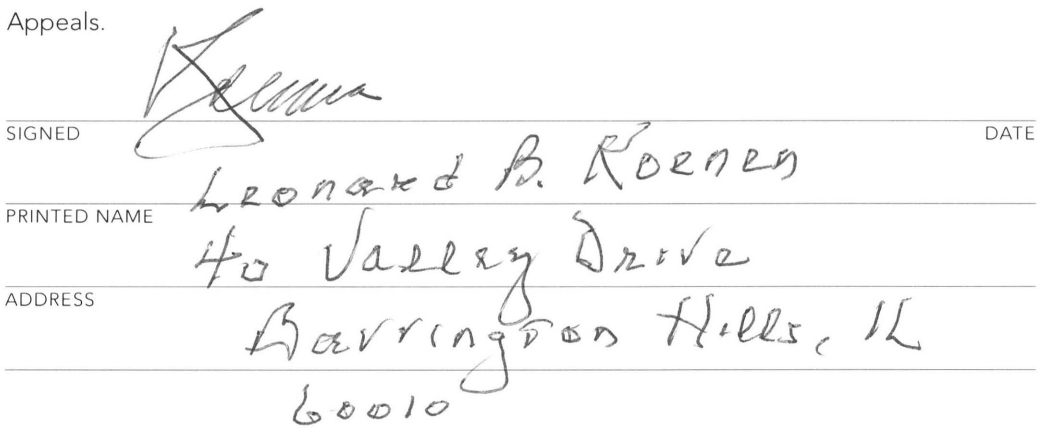 Appeals.
SIGNED DATE
Leonard B. Koenen
PRINTED NAME
40 Valley Drive
ADDRESS
Barrington Hills, IL
60010